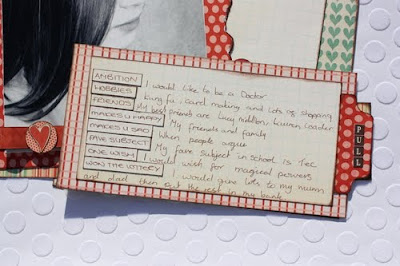 AMBITION I would like to be a Doctor
HOBBIES Kung fu, Card making and lots of shopping
FRIENDS My best friends are Lucy, Lauren,
MAKES U HAPPY My friends and family
MAKES U SAD When people argue
FAVE SUBJECT My fave subject in school is Tec
ONE WISH I would wish for magical powers
WON THE LOTTERY I would give lots to my mumm
and dad then put the rest in my bank
PULL